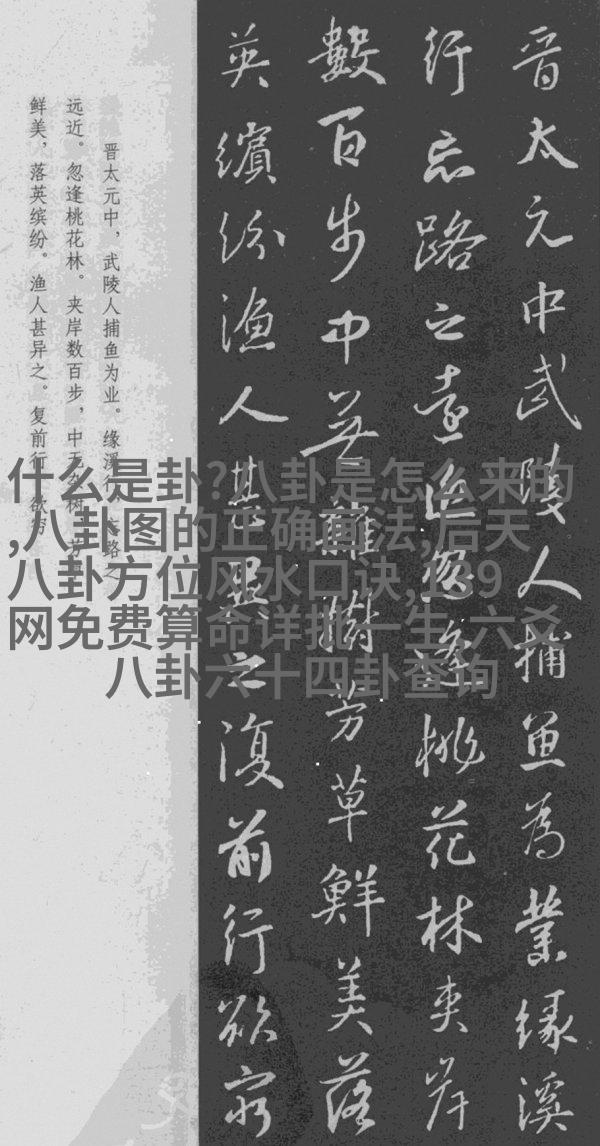 晋太元中武陵人捕魚為業緣溪
行忘路之遠近忽逢桃花林夾岸
數百步中無雜樹芳草鮮美落
英繽紛漁人甚異之復前行欲窮
晋太元中，武陵人捕鱼为业。缘溪行，忘路之
远近。忽逢桃花林。夹岸数百步，中无杂树，芳草
鲜美，落英缤纷。渔人甚异之。复前行，欲穷
什么是卦?八卦是怎么来的
,八卦图的正确画法,后天
八卦方位风水口诀,139
网免费算命详批一生,六爻
八卦六十四卦查询